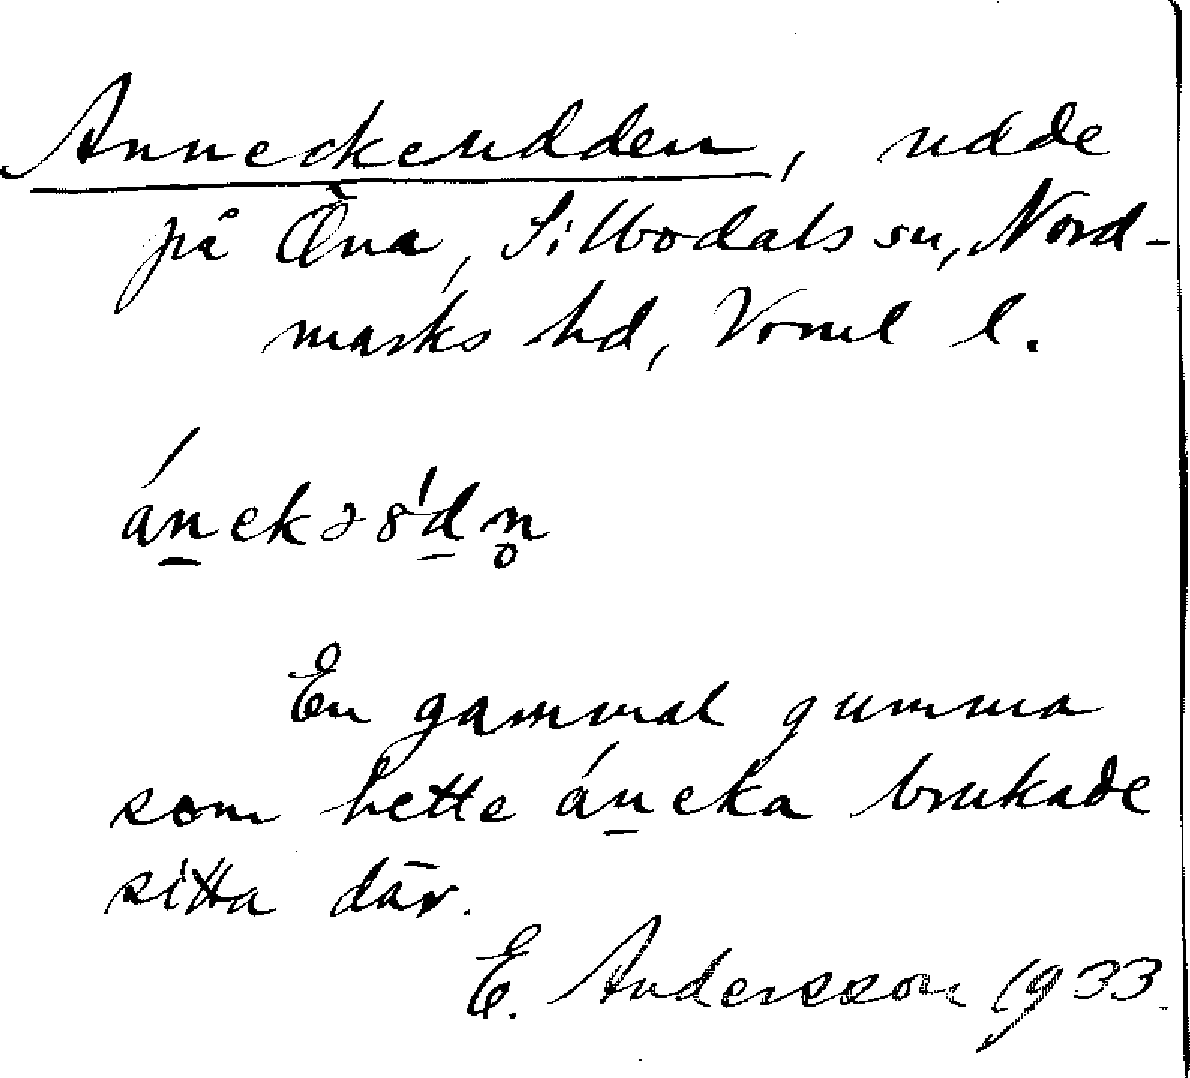 Anneckeudden, udde
på Öna, Silbodals sn, Nord-
marks hd, Vrml l.
ánekə8'dn̥
En gammal gumma
som hette áneka brukade
sitta där.
E. Andersson 1933.